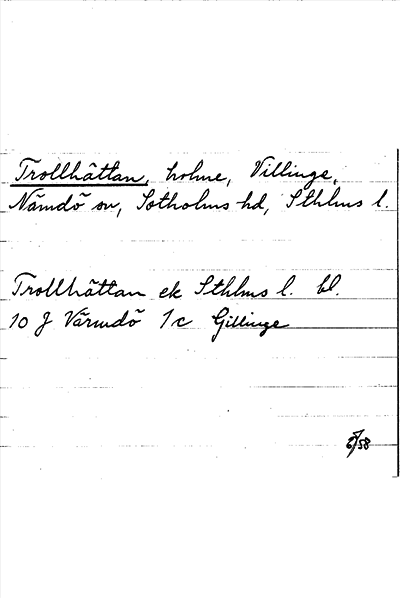 Trollhättan, holme, Villinge,
Nämdö sn, Sotholms hd, Sthlms l.
Trollhättan ek Sthlms l. bl.
10 J Värmdö 1c Gillinge